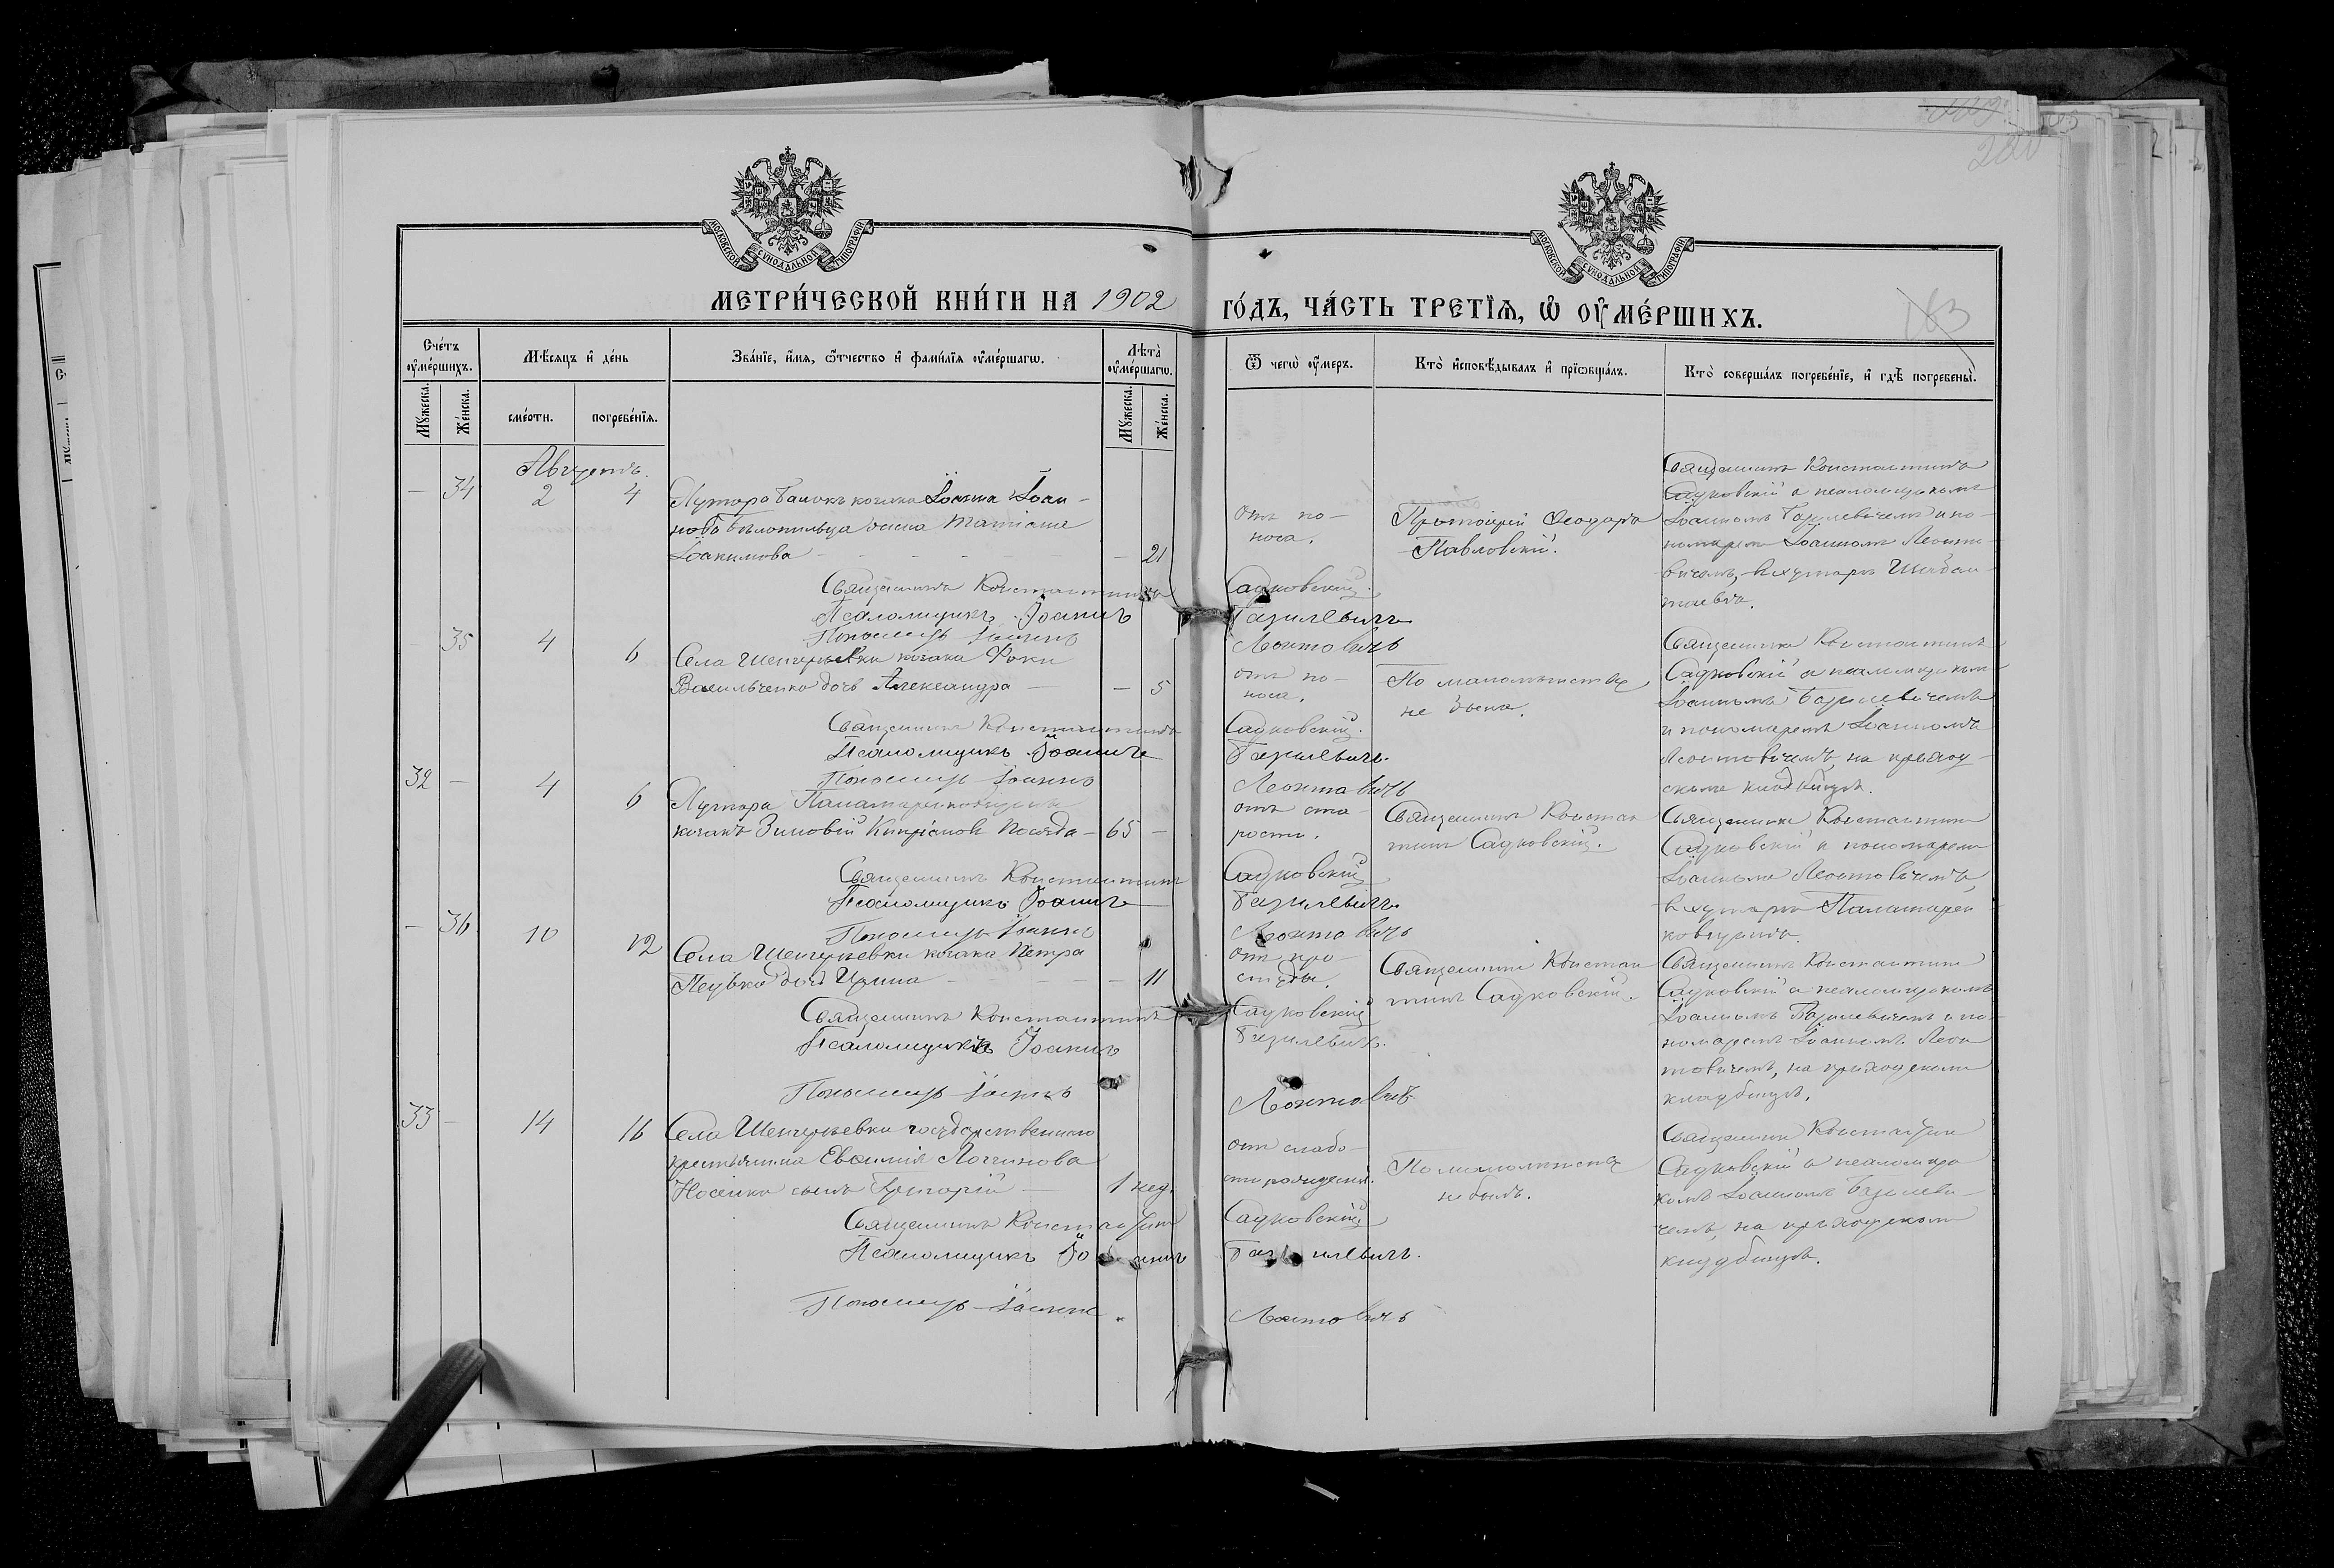 МОСКОВСКОЙ СУНОДАЛЬНОЙ ТИПОГРАФІИ
МОСКОВСКОЙ СУНОДАЛЬНОЙ ТИПОГРАФІИ
МЕТРИ́ЧЕСКОЙ КНИ́ГИ НА 1902
ГО́ДЪ, ЧА́СТЬ ТРЕТІЯ, Ѡ ОУМЕ́РШИХЪ.
Сче́тъ оумéршихъ.
Мѣсяцъ и де́нь
Зва́нїе, и́мя, ѻтчество и фами́лїя оуме́ршагѡ.
Лѣта̀ оуме́ршагѡ.
Ѿ чегѡ̀ оу́меръ.
Кто̀ исповѣ́дывалъ и прїѡбща́лъ.
Кто̀ соверша́лъ погребе́нїе, и гдѣ̀ погребены̀.
Мꙋжеска.
Же́нска.
сме́рти.
погребе́нїя.
Мꙋжеска.
Же́нска.
Августъ.
— 34 2 4
Хутора Балокъ козака Іоанна Іоан-
нова Бѣлопильца жена Татіана
Іоакимова — 21
отъ по-
носа.
Протоіерей Ѳеодоръ
Павловскій.
Священникъ Константинъ
Садковскій с псаломщикомъ
Іоанномъ Базилевичемъ и по-
номаремъ Іоанномъ Леонто-
вичемъ, в хуторѣ
Священникъ Константинъ Садковскій.
Псаломщикъ Іоаннъ Базилевичъ
Пономарь Іоаннъ Леонтовичъ
35 4 6
Села Шенгерѣевки козака Фоки
Васильченко дочь Александра — — 5
отъ по-
носа.
По малолѣтству
не была.
Священникъ Константинъ
Садковскій с псаломщикомъ
Іоанномъ Базилевичемъ
и пономаремъ Іоанномъ
Леонтовичемъ, на приход-
скомъ кладбищѣ.
Священникъ Константинъ Садковскій.
Псаломщикъ Іоаннъ Базилевичъ.
Пономарь Іоаннъ Леонтовичъ
32 — 4 6
Хутора
козакъ Зиновій Кипріановъ — 65 —
отъ ста-
рости.
Священникъ Констан
тинъ Садковскій.
Священникъ Константинъ
Садковскій с пономаремъ
Іоанномъ Леонтовичемъ,
в хуторѣ
Священникъ Константинъ Садковскій
Псаломщикъ Іоаннъ Базилевичъ.
Пономарь Іоаннъ Леонтовичъ
— 36 10 12
Села Шенгерѣевки козака Петра
дочь Ирина — 11
отъ про-
студы.
Священникъ Констан
тинъ Садковскій.
Священникъ Константинъ
Садковскій с псаломщикомъ
Іоанномъ Базилевичемъ и по-
номаремъ Іоанномъ Леон
товичемъ, на приходскомъ
кладбищѣ.
Священникъ Константинъ Садковскій
Псаломщикъ Іоаннъ Базилевичъ.
Пономарь Іоаннъ Леонтовичъ
33 — 14 16
Села Шенгерѣевки государственнаго
крестьянина Евѳимія Логгинова
Носенка сынъ Григорій — 1 нед.
отъ слабо-
сти рожденія.
По малолѣтству
не былъ.
Священникъ Константинъ
Садковскій с псаломщи
комъ Іоанномъ Базилеви-
чемъ, на приходскомъ
кладбищѣ.
Священникъ Константинъ Садковскій
Псаломщикъ Іоаннъ Базилевичъ.
Пономарь Іоаннъ Леонтовичъ